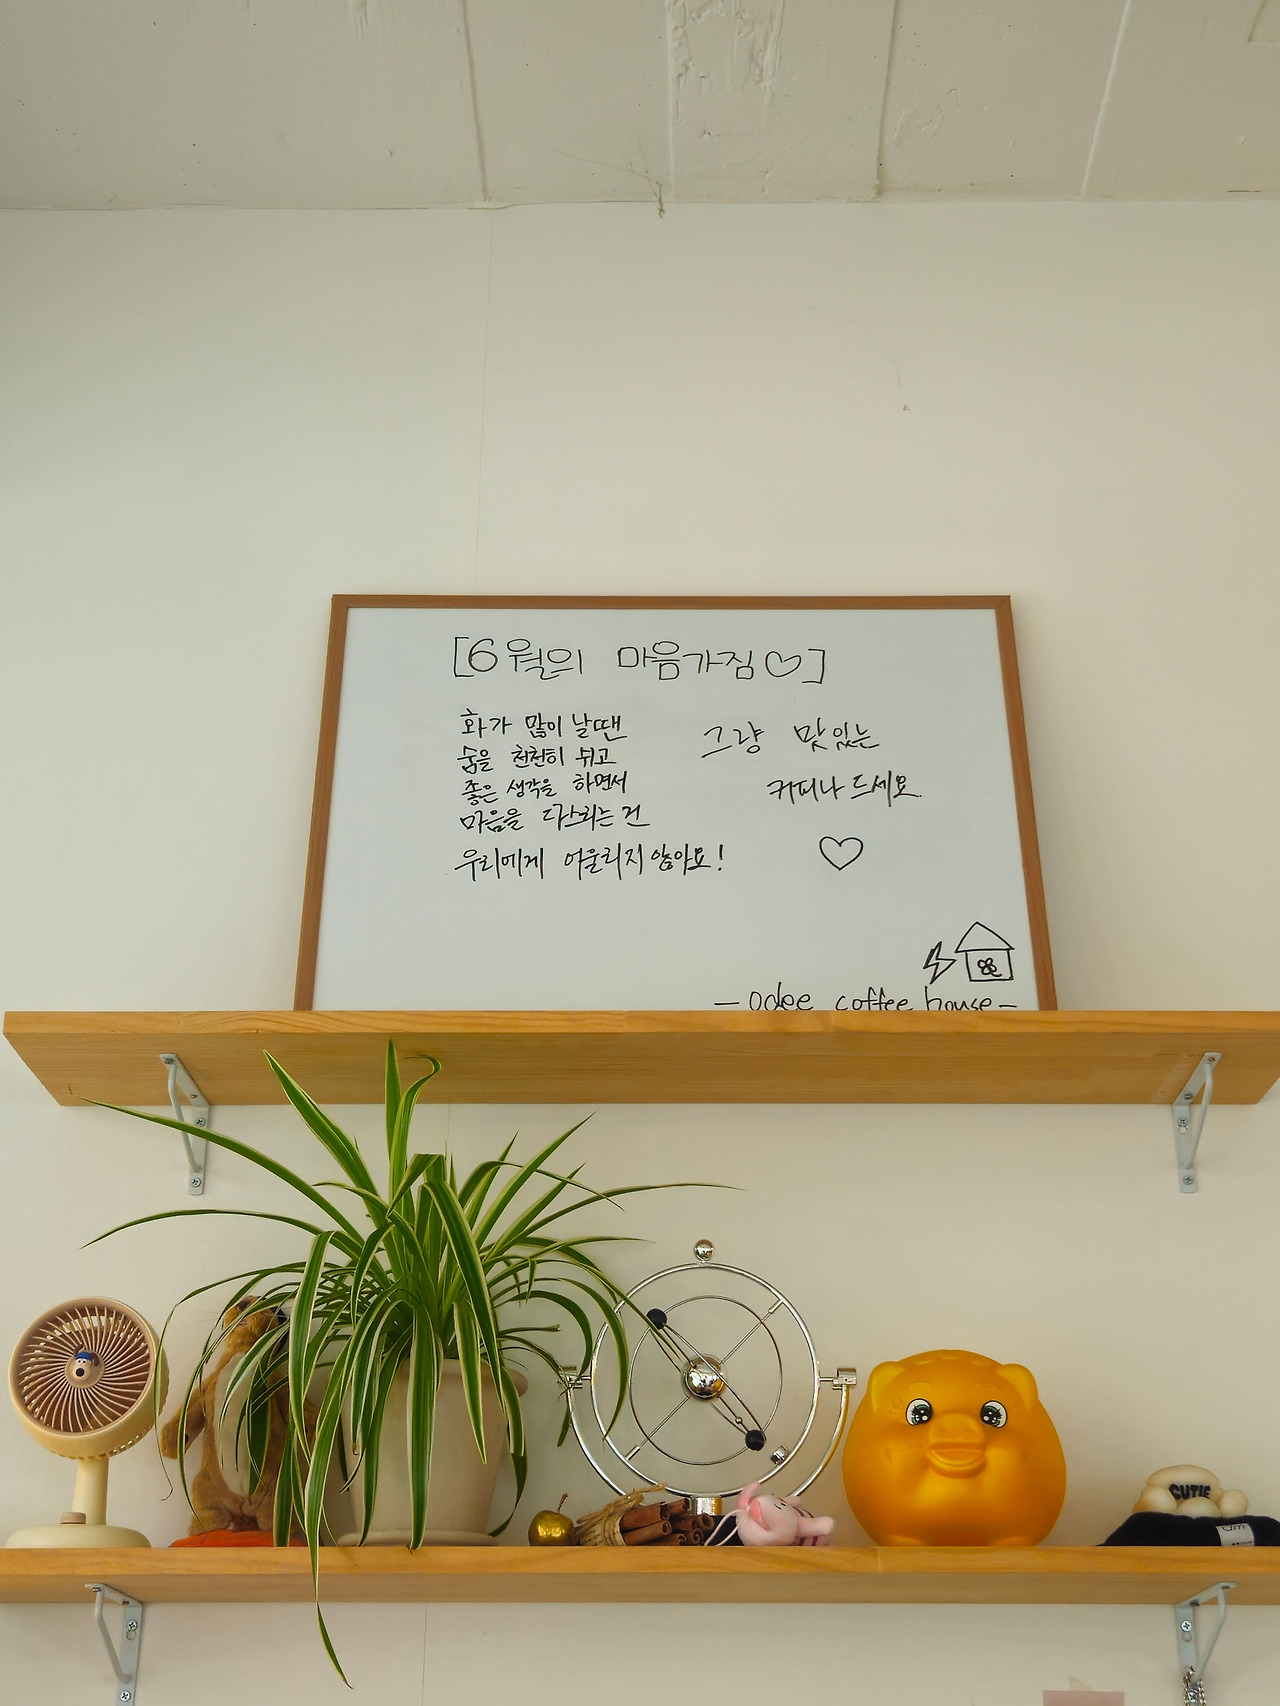 [6월의 마음가짐♡]
화가 많이 날땐
숨을 천천히 쉬고
좋은 생각을 하면서
마음을 다스리는 건
우리에게 어울리지 않아요!
그냥 맛있는
커피나 드세요
♡
- odee coffee house -
CUTIE